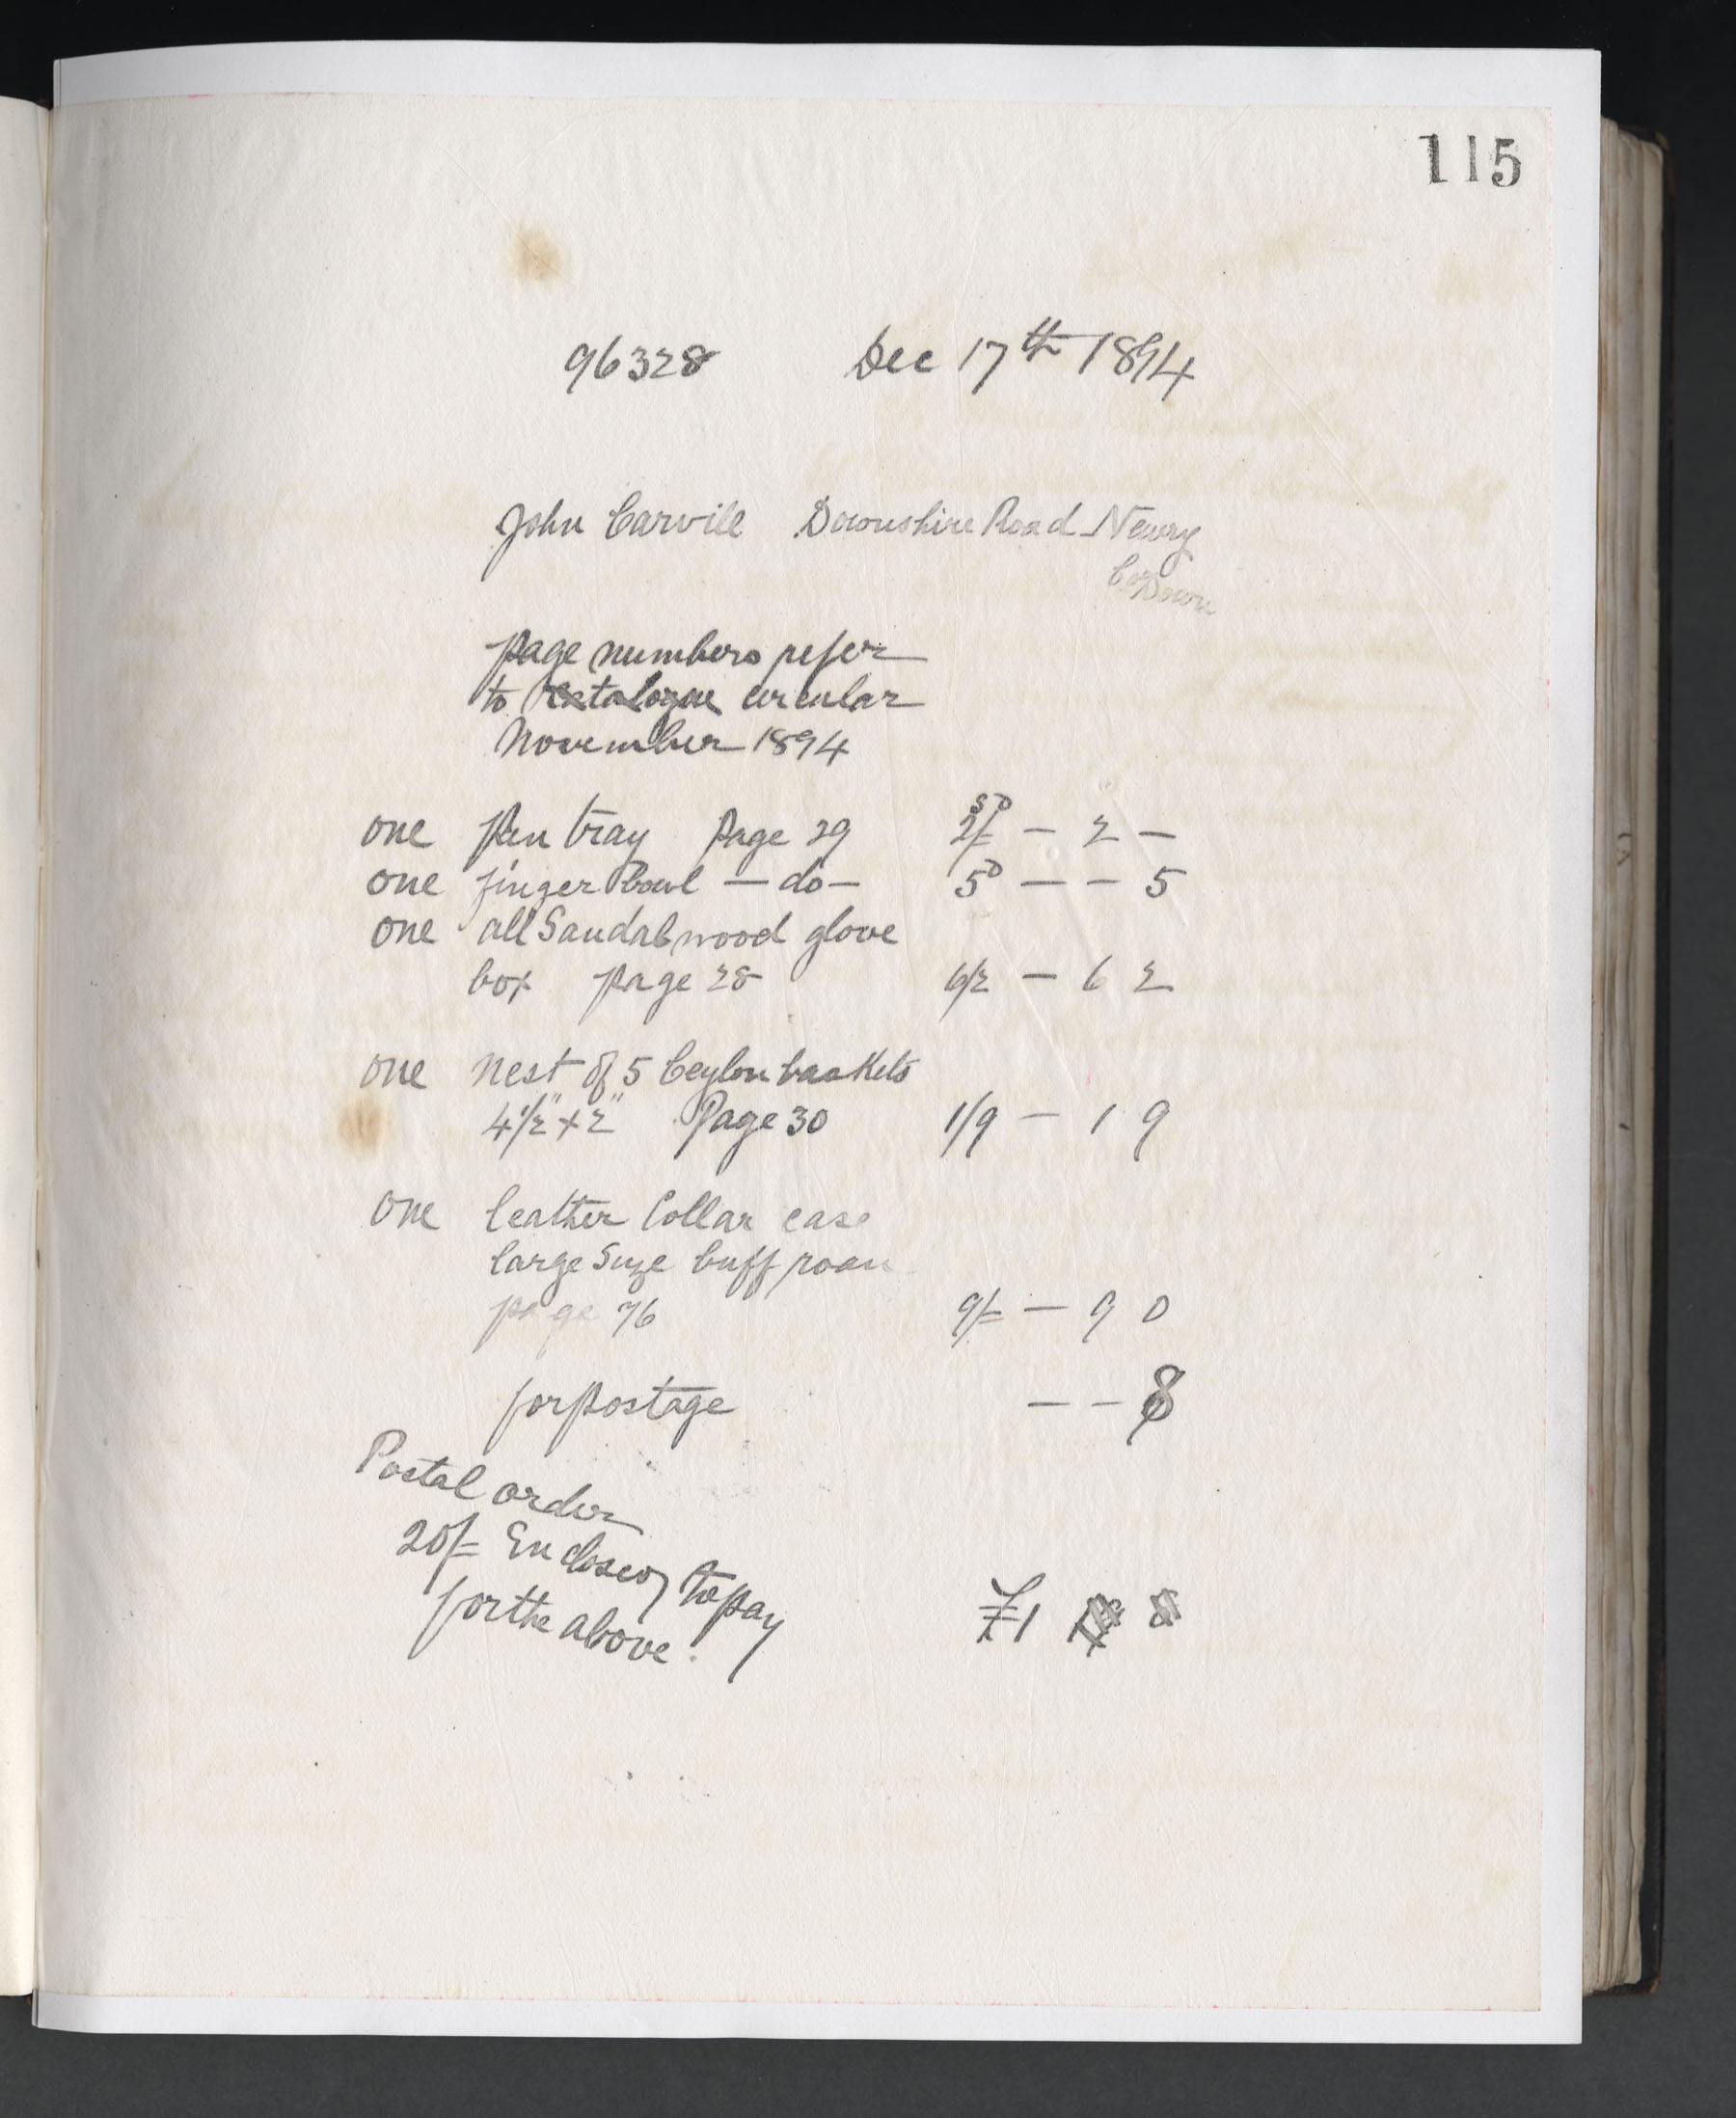 115
96328 Dec 17th 1894
John Carvill Downshire Road Newry
Co Down
page numbers refer
to catalogue circular
November 1894
S D
one Pen tray Page 29 2/= — 2 —
one finger Bowl — do — 5D — — 5
one all Sandalwood glove
box page 28 6/2 — 6 2
one nest of 5 Ceylon baskets
4 1/2" x 2" Page 30 1/9 — 1 9
one leather Collar case
large Size buff roan
page 76 9/= — 9 0
for postage — — 8
Postal order
20/= Enclosed to pay
for the above.
£1